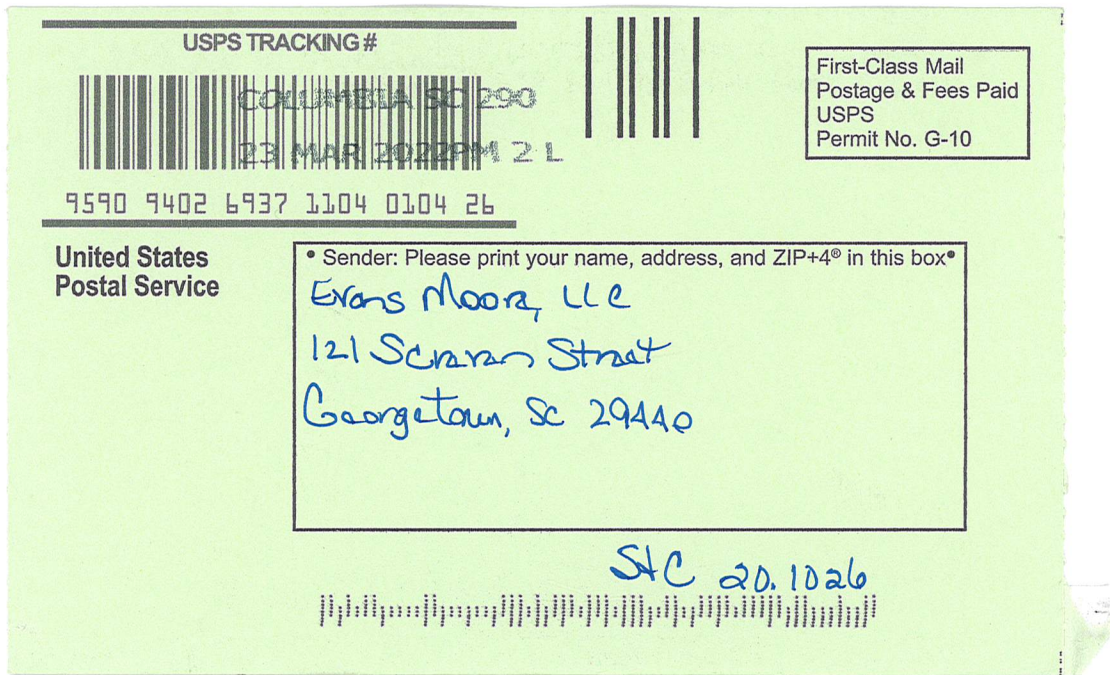 USPS TRACKING #
COLUMBIA SC 290
23 MAR 2022 PM 2 L
9590 9402 6937 1104 0104 26
First-Class Mail
Postage & Fees Paid
USPS
Permit No. G-10
United States
Postal Service
• Sender: Please print your name, address, and ZIP+4® in this box•
Evans Moore, LLC
121 Screven Street
Georgetown, SC 29440
StC 20.1026